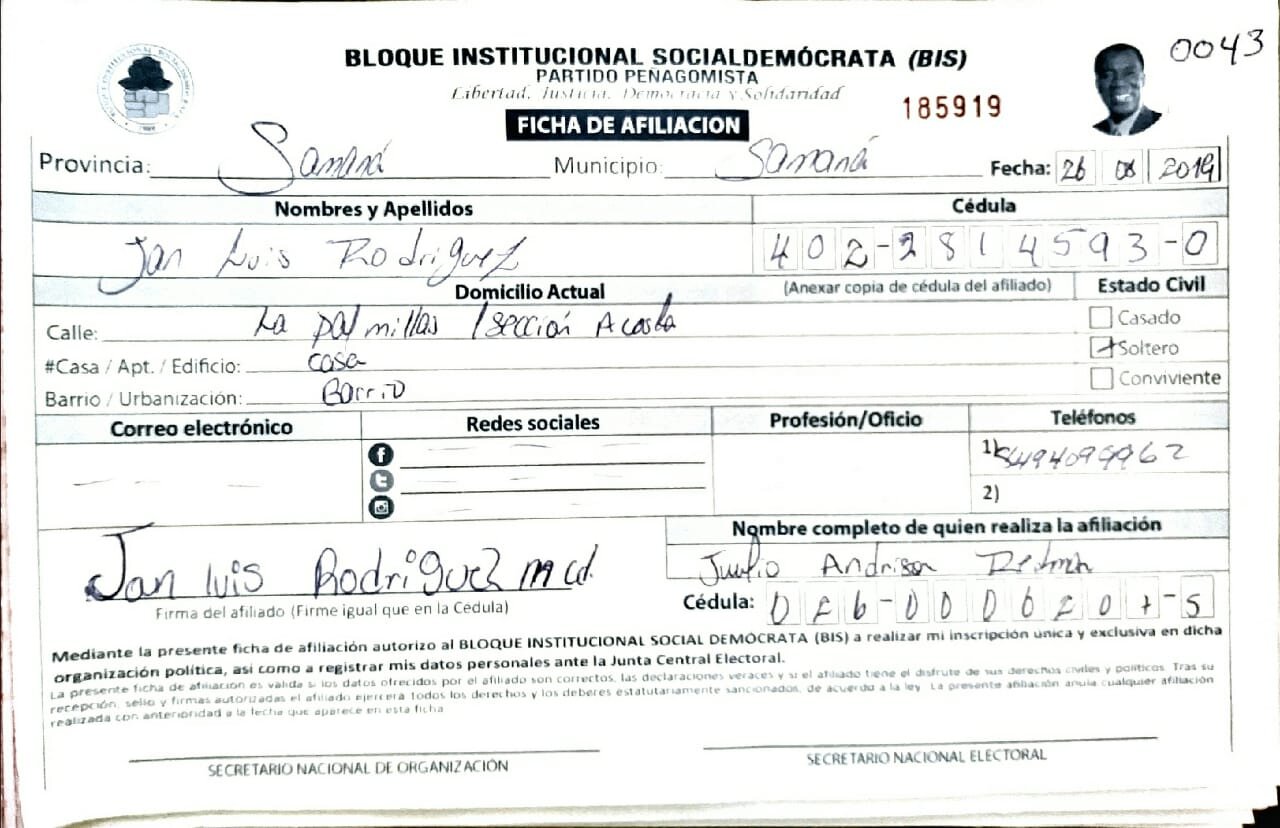 0043
BLOQUE INSTITUCIONAL SOCIALDEMÓCRATA (BIS)
PARTIDO PEÑAGOMISTA
Libertad, Justicia, Democracia y Solidaridad
185919
FICHA DE AFILIACION
Provincia: Samaná Municipio: Samaná Fecha: 26 08 2019
Nombres y Apellidos Cédula
Jan Luis Rodriguez 402-2814593-0
Domicilio Actual (Anexar copia de cédula del afiliado) Estado Civil
Calle: La palmillas /sección Acosta
Casado
#Casa / Apt. / Edificio: casa
Soltero
Barrio / Urbanización: Barrio
Conviviente
Correo electrónico Redes sociales Profesión/Oficio Teléfonos
1) 8494099962
2)
Nombre completo de quien realiza la afiliación
Jan Luis Rodriguez m cd.
Julio
Firma del afiliado (Firme igual que en la Cédula)
Cédula:
Mediante la presente ficha de afiliación autorizo al BLOQUE INSTITUCIONAL SOCIAL DEMÓCRATA (BIS) a realizar mi inscripción única y exclusiva en dicha
organización política, así como a registrar mis datos personales ante la Junta Central Electoral.
La presente ficha de afiliación es valida si los datos ofrecidos por el afiliado son correctos, las declaraciones veraces y si el afiliado tiene el disfrute de sus derechos civiles y políticos. Tras su
recepción, sello y firmas autorizadas el afiliado ejercerá todos los derechos y los deberes estatutariamente sancionados, de acuerdo a la ley. La presente afiliación anula cualquier afiliación
realizada con anterioridad a la fecha que aparece en esta ficha
SECRETARIO NACIONAL DE ORGANIZACIÓN SECRETARIO NACIONAL ELECTORAL